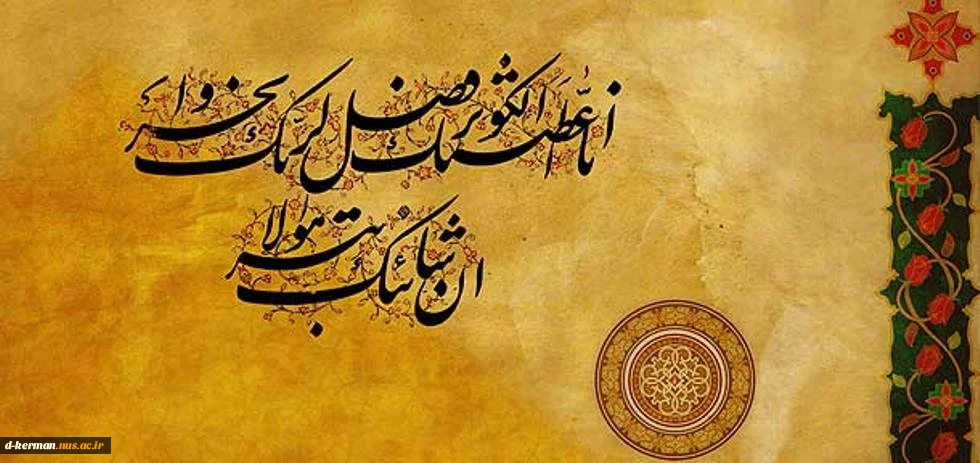 انا اعطیناک الکوثر فصل لربک وانحر
ان شانئک هو الابتر
d-kerman.nus.ac.ir